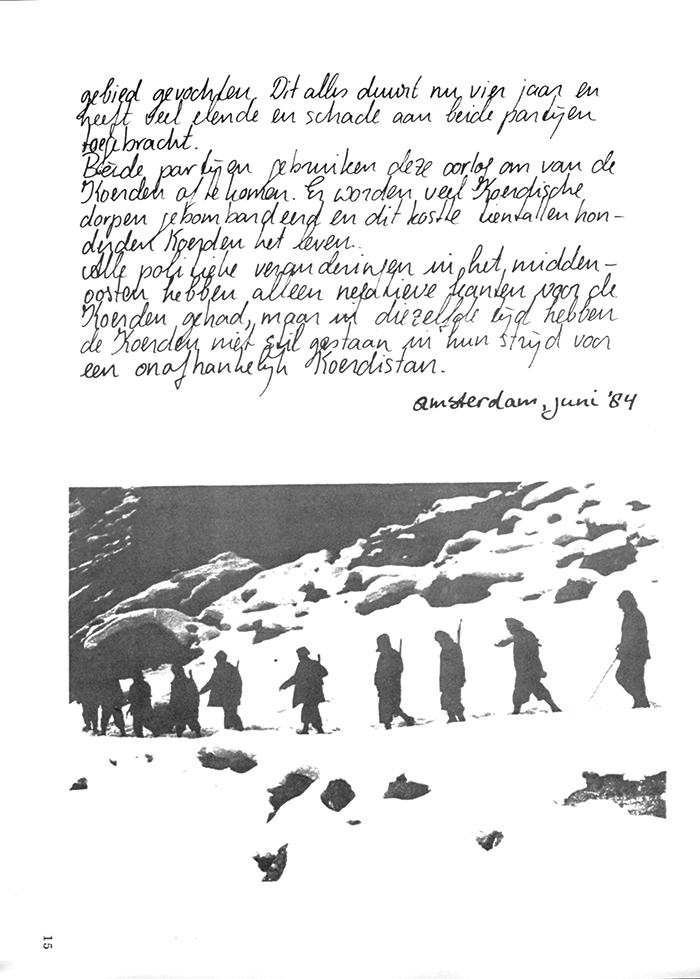 gebied gevochten. Dit alles duurt nu vier jaar en
heeft veel elende en schade aan beide partijen
toegebracht.
Beide partijen gebruiken deze oorlog om van de
Koerden af te komen. Er worden veel Koerdische
dorpen gebombardeerd en dit kostte tientallen hon-
derden Koerden het leven.
Alle politieke veranderingen in het midden-
oosten hebben alleen negatieve kanten voor de
Koerden gehad, maar in diezelfde tijd hebben
de Koerden niet stil gestaan in hun strijd voor
een onafhankelijk Koerdistan.
amsterdam, juni '84
15